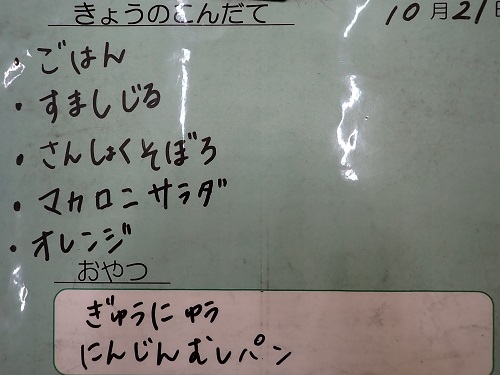 きょうのこんだて 10月21日
・ごはん
・すましじる
・さんしょくそぼろ
・マカロニサラダ
・オレンジ
おやつ
ぎゅうにゅう
にんじんむしパン